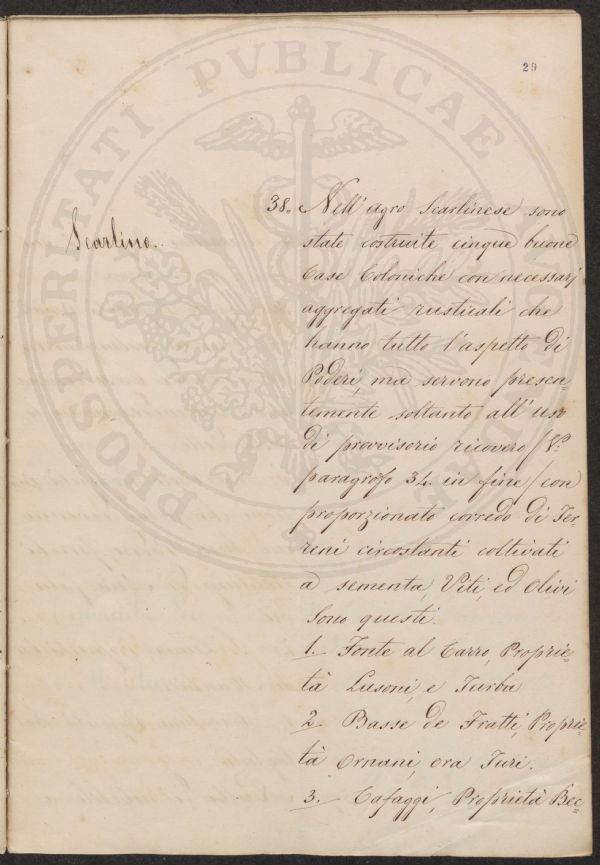 29
PROSPERITATI PVBLICAE
Scarlino.
38. Nell'agro Scarlinese sono
state costruite cinque buone
Case Coloniche con necessarj
aggregati rusticali che
hanno tutto l'aspetto di
Poderi, ma servono presen=
temente soltanto all'uso
di provvisorio ricovero /V.
paragrafo 34. in fine/ con
proporzionato corredo di Ter=
reni circostanti coltivati
a sementa, Viti, ed Olivi
Sono questi.
1. Fonte al Carro, Proprie=
tà Lusoni, e Turba
2. Basse de Fratti, Proprie=
tà Ornani, ora Turi.
3. Cafaggi, Proprietà Bec=